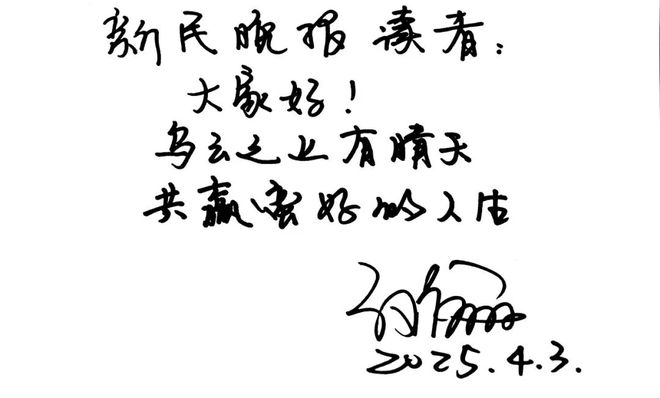 新民晚报读者:
大家好!
乌云之上有晴天
共赢蛮好的人生
孙俪
2025.4.3.